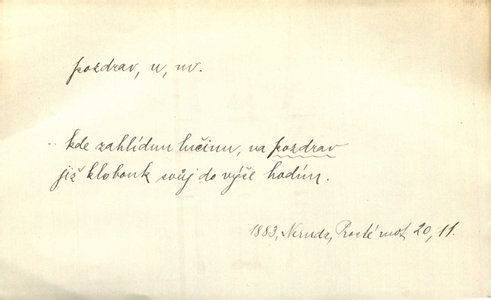 pozdrav, u, m.
.. kde zahlídnu lučinu, na pozdrav
již klobouk svůj do výše hodím.
1883, Neruda, Prosté mot, 20, 11.